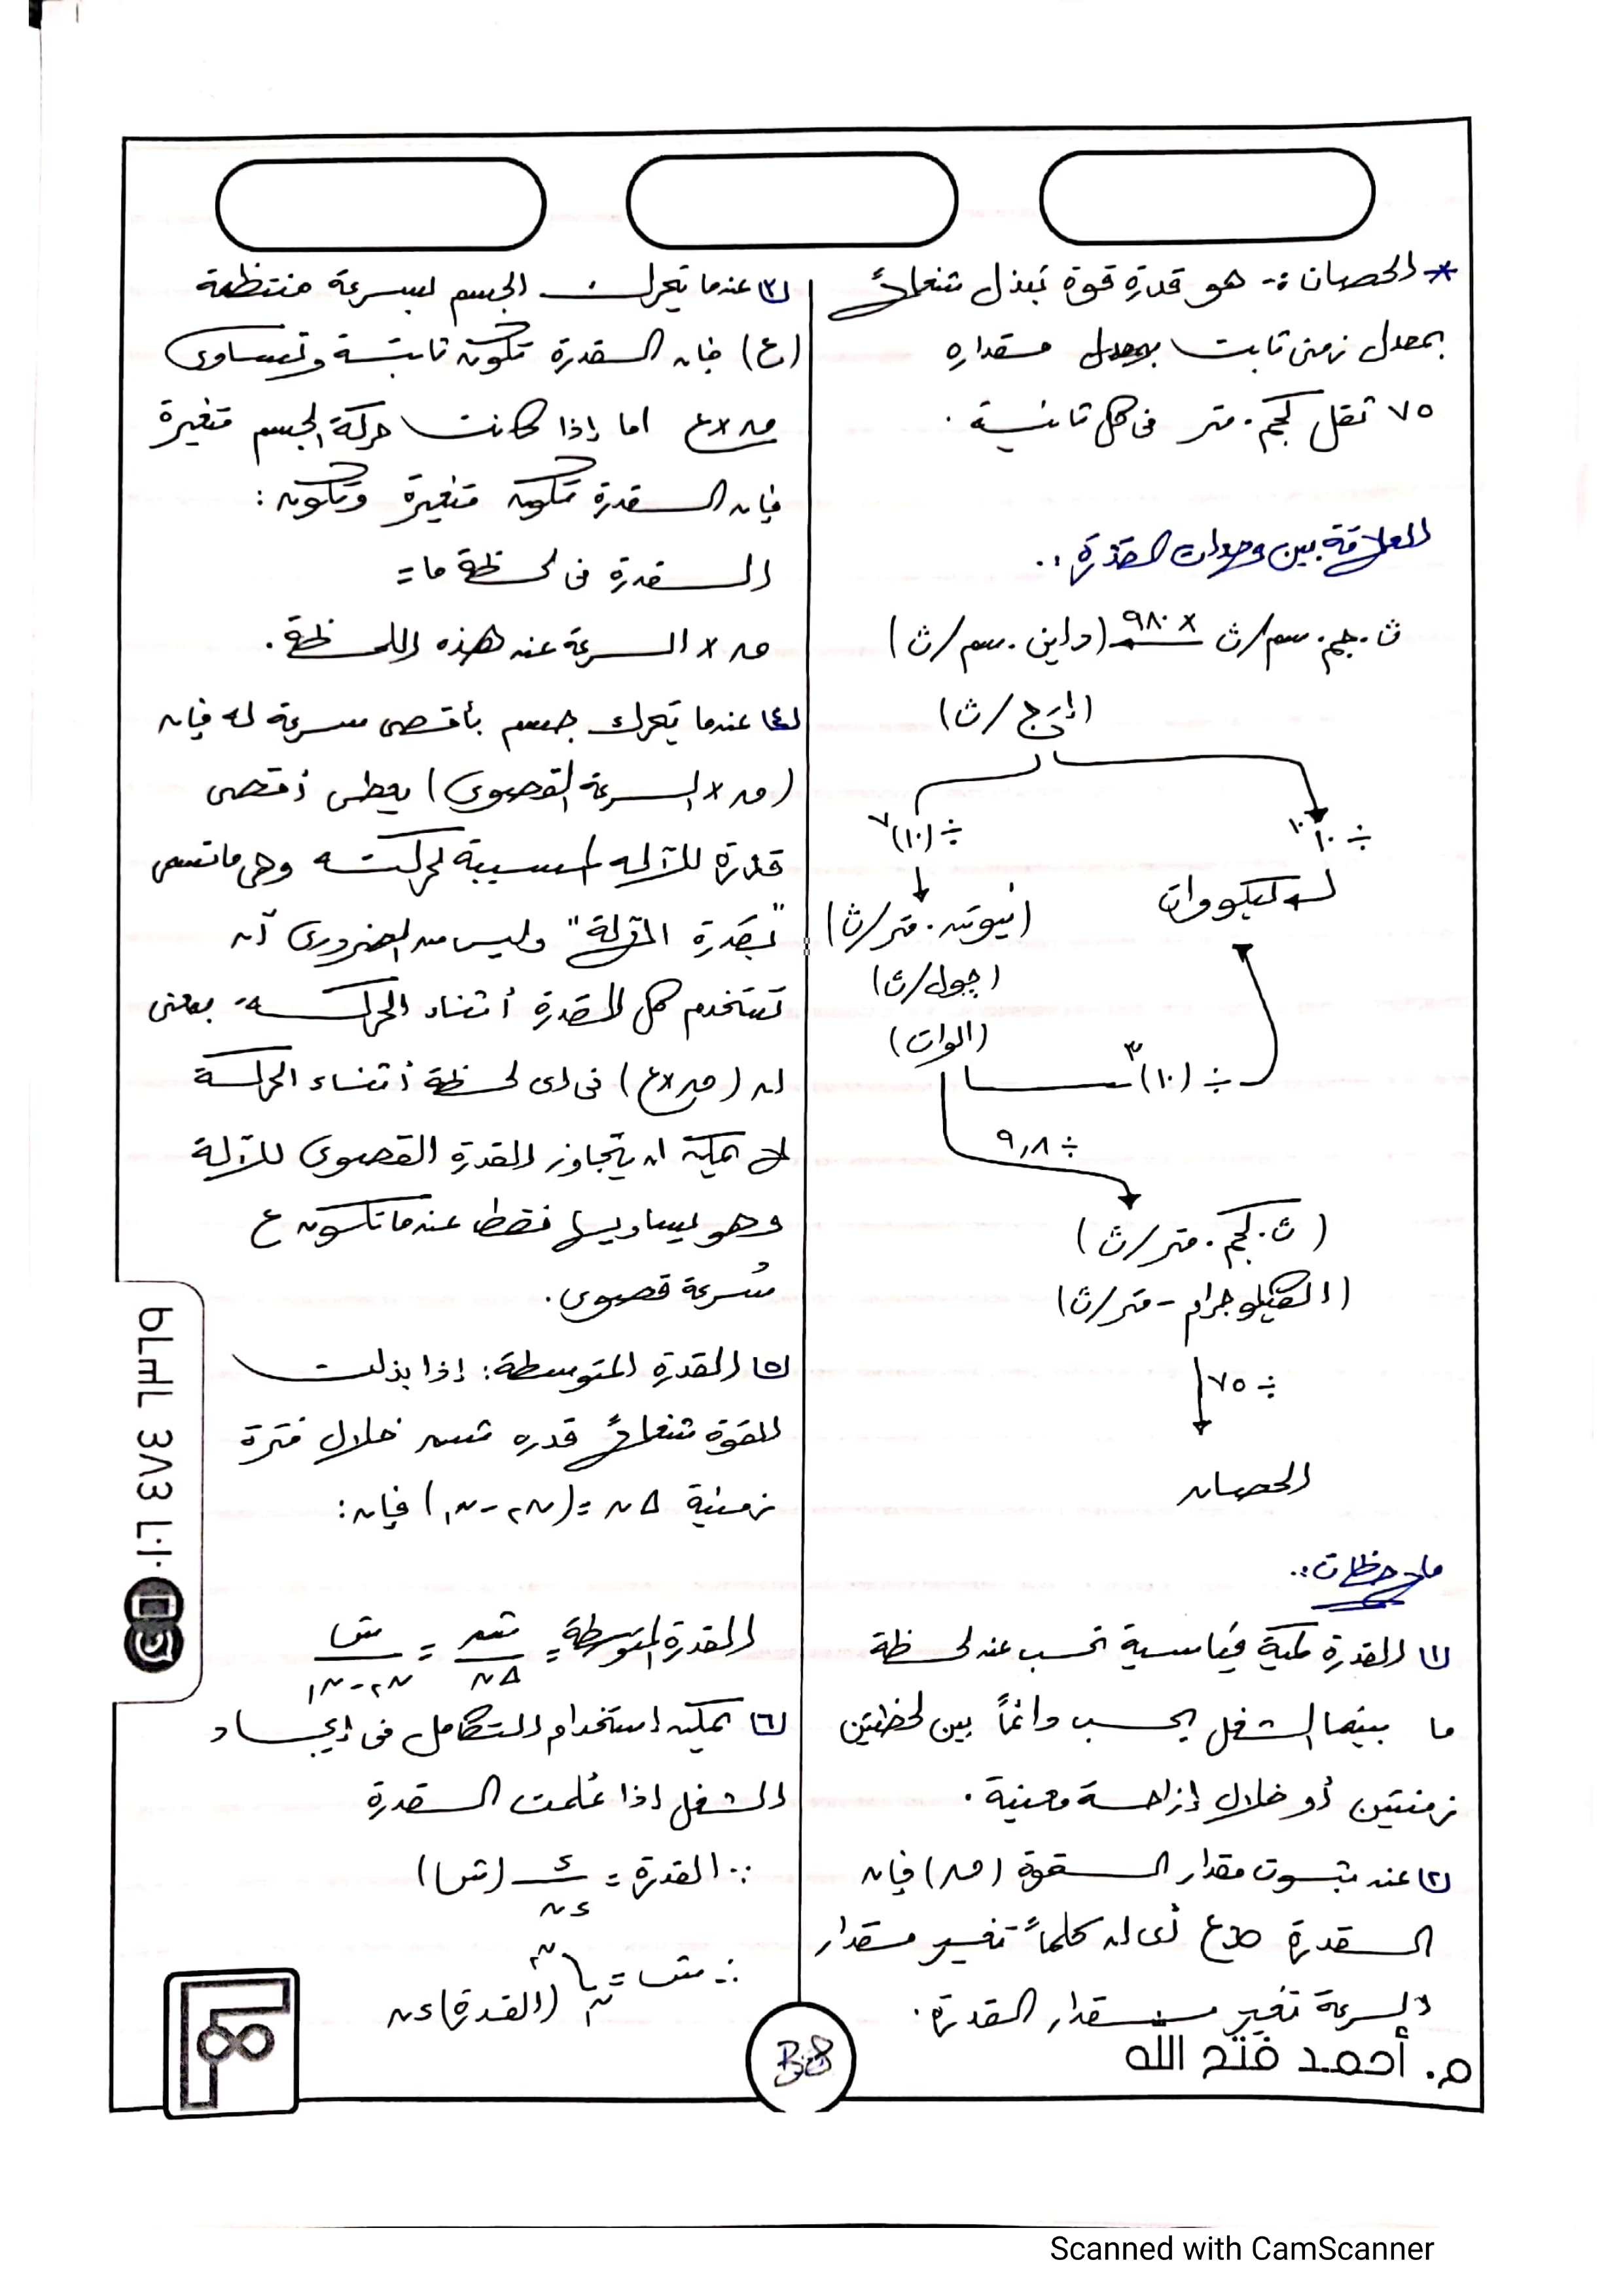 * الحصان :- هو قدرة قوة تبذل شغلاً
بمعدل زمنى ثابت بمعدل مقداره
٧٥ ثقل كجم . متر فى كل ثانية .
العلاقة بين وحدات القدرة :.
ث.جم.سم/ث × ٩٨٠ (داين.سم/ث)
(إرج/ث)
÷ (١٠)٧
÷ ١٠ ١٠
كيلووات
(نيوتن.متر/ث)
(جول/ث)
(الوات)
÷ (١٠)٣
÷ ٩,٨
(ث.كجم.متر/ث)
(الكيلوجرام-متر/ث)
÷ ٧٥
الحصان
ملاحظات :.
(١) القدرة كمية قياسية تحسب عند لحظة
ما بينما الشغل يحسب دائماً بين لحظتين
زمنتين أو خلال إزاحة معينة .
(٢) عند ثبوت مقدار القوة (ق) فإن
القدرة ∝ ع أى ان كلما تغير مقدار
السرعة تغير مقدار القدرة .
(٣) عندما يتحرك الجسم بسرعة منتظمة
(ع) فإن القدرة تكون ثابتة وتساوى
ق×ع اما إذا كانت حركة الجسم متغيرة
فإن القدرة تكون متغيرة وتكون :
القدرة فى لحظة ما =
ق × السرعة عند هذه اللحظة .
(٤) عندما يتحرك جسم بأقصى سرعة له فإن
(ق × السرعة القصوى) يعطى أقصى
قدرة للآله المسببة لحركته وهى ماتسمى
"بقدرة الآلة" وليس من الضرورى أن
تستخدم كل القدرة أثناء الحركة بمعنى
ان (ق×ع) فى اى لحظة أثناء الحركة
لا يمكن ان يتجاوز القدرة القصوى للآلة
وهو يساويها فقط عندما تكون ع
سُرعة قصوى .
(٥) القدرة المتوسطة : إذا بذلت
القوة شغلاً قدره ش خلال فترة
زمنية Δن = (ن٢ - ن١) فإن :
القدرة المتوسطة = ش/Δن = ش/ن٢-ن١
(٦) يمكن استخدام التكامل فى إيجاد
الشغل اذا عُلمت القدرة
∵ القدرة = ء/ءن (ش)
∴ ش = ∫ (القدرة) ءن
م. أحمد فتح الله
٠١٠٦ ٤٨٤ ٦٤٦٩
Scanned with CamScanner